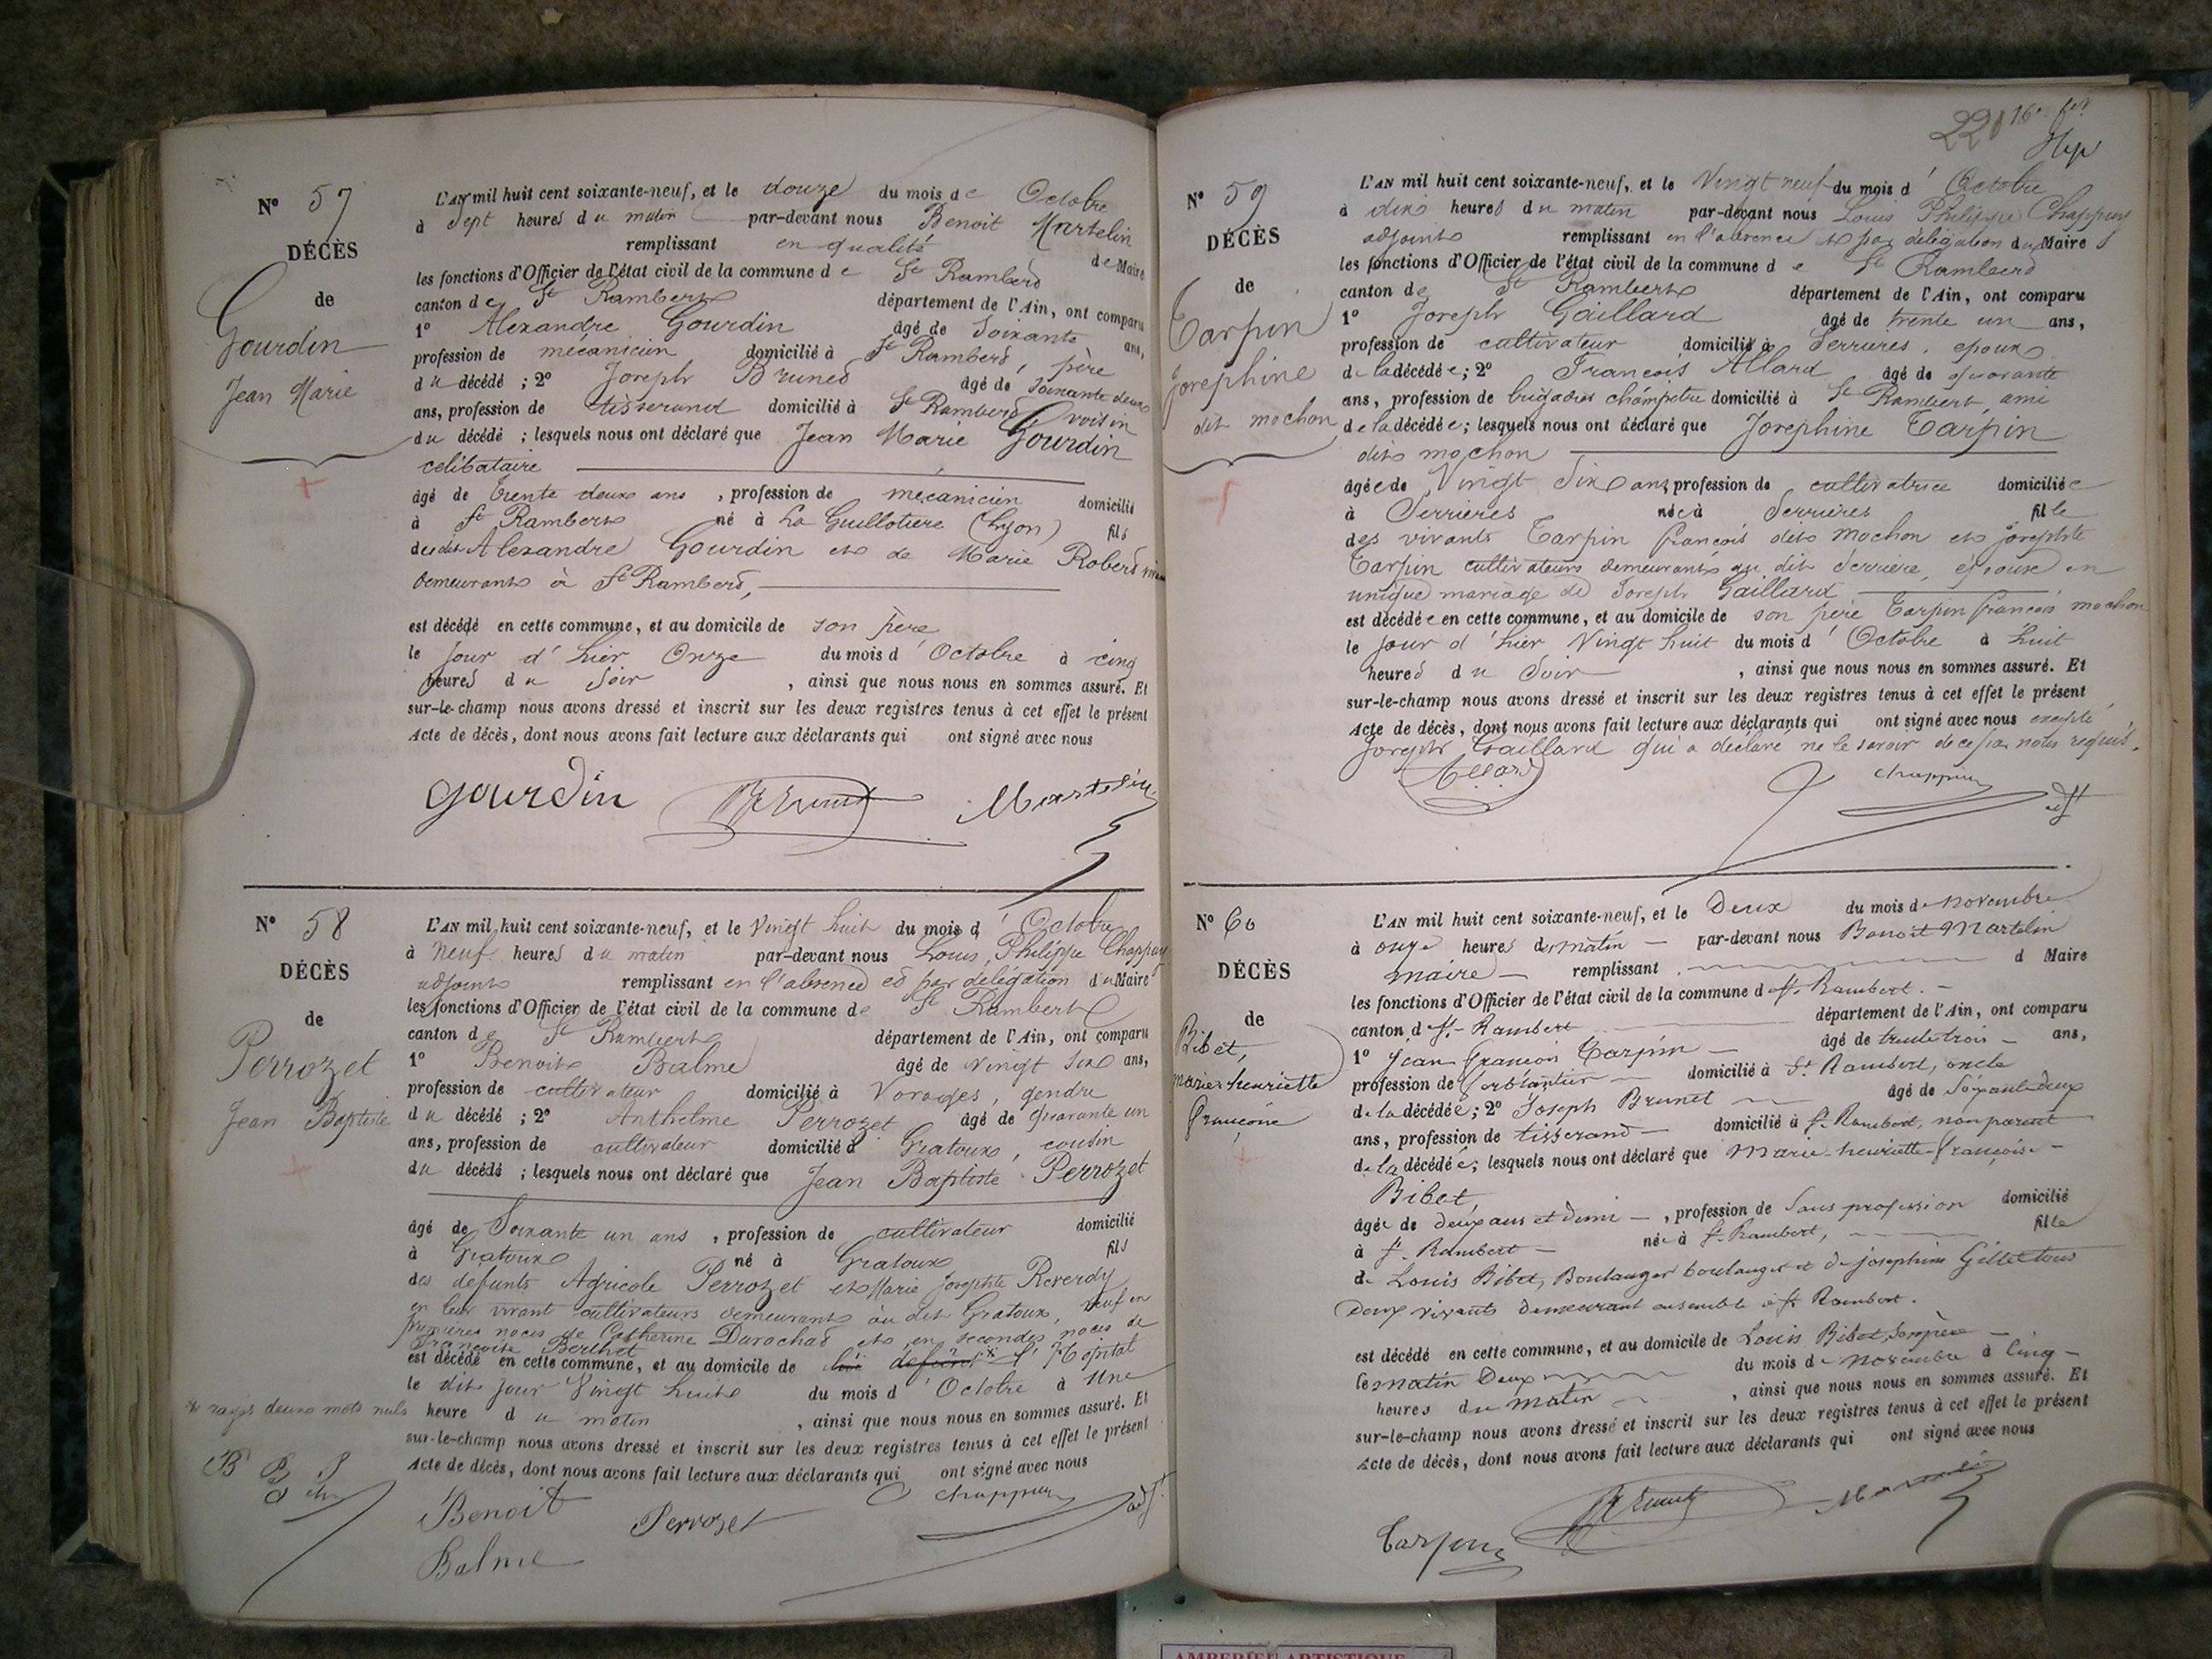 N° 57
DÉCÈS
de
Gourdin
Jean Marie
L'AN mil huit cent soixante-neuf, et le douze du mois de Octobre
à Sept heures du matin par-devant nous Benoit Martelin
remplissant en qualité de Maire
les fonctions d'Officier de l'état civil de la commune de St Rambert
canton de St Rambert département de l'Ain, ont comparu
1° Alexandre Gourdin âgé de Soixante ans,
profession de mécanicien domicilié à St Rambert, père
du décédé ; 2° Joseph Brunet âgé de Soixante deux
ans, profession de tisserand domicilié à St Rambert voisin
du décédé ; lesquels nous ont déclaré que Jean Marie Gourdin
celibataire
âgé de trente deux ans , profession de mécanicien domicilié
à St Rambert né à La Guillotiere (Lyon) fils
dudit Alexandre Gourdin et de Marie Robert
demeurants à St Rambert,
est décédé en cette commune, et au domicile de son père
le jour d'hier Onze du mois d'Octobre à cinq
heures du Soir , ainsi que nous nous en sommes assuré. Et
sur-le-champ nous avons dressé et inscrit sur les deux registres tenus à cet effet le présent
Acte de décès, dont nous avons fait lecture aux déclarants qui ont signé avec nous
Gourdin Brunet Martelin
N° 58
DÉCÈS
de
Perrozet
Jean Baptiste
L'AN mil huit cent soixante-neuf, et le Vingt huit du mois d'Octobre
à Neuf heures du matin par-devant nous Louis Philippe Chappuy
adjoint remplissant en l'absence et par délégation du Maire
les fonctions d'Officier de l'état civil de la commune de St Rambert
canton de St Rambert département de l'Ain, ont comparu
1° Benoit Balme âgé de Vingt six ans,
profession de cultivateur domicilié à Vorages, gendre
du décédé ; 2° Anthelme Perrozet âgé de quarante un
ans, profession de cultivateur domicilié à Gratoux, cousin
du décédé ; lesquels nous ont déclaré que Jean Baptiste Perrozet
âgé de Soixante un ans , profession de cultivateur domicilié
à Gratoux né à Gratoux fils
des defunts Agricole Perrozet et Marie Josephte Reverdy
en leur vivant cultivateurs demeurants au dit Gratoux, veuf en
premières noces de Catherine Darochas et en secondes noces de
Françoise Berthet
est décédé en cette commune, et au domicile de lui defunt * l'Hopital
le dit jour Vingt huit du mois d'Octobre à Une
heure du matin , ainsi que nous nous en sommes assuré. Et
sur-le-champ nous avons dressé et inscrit sur les deux registres tenus à cet effet le présent
Acte de décès, dont nous avons fait lecture aux déclarants qui ont signé avec nous
* rayés deux mots nuls
B P
Benoit Perrozet Chappuy adj.
Balme
221 16e
N° 59
DÉCÈS
de
Tarpin
Josephine
dit mochon
L'AN mil huit cent soixante-neuf, et le Vingt neuf du mois d'Octobre
à dix heures du matin par-devant nous Louis Philippe Chappuy
adjoint remplissant en l'absence et par délégation du Maire
les fonctions d'Officier de l'état civil de la commune de St Rambert
canton de St Rambert département de l'Ain, ont comparu
1° Joseph Gaillard âgé de trente un ans,
profession de cultivateur domicilié à Serrières, epoux
de la décédée ; 2° François Allard âgé de quarante
ans, profession de brigadier champetre domicilié à St Rambert, ami
de la décédée ; lesquels nous ont déclaré que Josephine Tarpin
dits mochon
âgée de Vingt Six ans, profession de cultivatrice domiciliée
à Serrieres née à Serrières fille
des vivants Tarpin françois dits mochon et josephte
Tarpin cultivateurs demeurants au dit Serrière, épouse en
unique mariage de Joseph Gaillard
est décédée en cette commune, et au domicile de son père Tarpin francois mochon
le jour d'hier Vingt huit du mois d'Octobre à huit
heures du Soir , ainsi que nous nous en sommes assuré. Et
sur-le-champ nous avons dressé et inscrit sur les deux registres tenus à cet effet le présent
Acte de décès, dont nous avons fait lecture aux déclarants qui ont signé avec nous excepté
Joseph Gaillard qui a déclaré ne le savoir de ce par nous requis.
Allard Chappuy adj
N° 60
DÉCÈS
de
Bibet,
marie henriette
françoise
L'AN mil huit cent soixante-neuf, et le Deux du mois de novembre
à onze heures du matin par-devant nous Benoit Martelin
maire remplissant d Maire
les fonctions d'Officier de l'état civil de la commune d St. Rambert.
canton d St. Rambert département de l'Ain, ont comparu
1° Jean françois Tarpin âgé de trente trois ans,
profession de ferblantier domicilié à St Rambert, oncle
de la décédée ; 2° Joseph Brunet âgé de Soixante deux
ans, profession de tisserand domicilié à St. Rambert, non parent
de la décédée ; lesquels nous ont déclaré que Marie-henriette-françoise
Bibet,
âgée de deux ans et demi , profession de Sans profession domicilié
à St. Rambert née à St. Rambert, fille
de Louis Bibet, Boulanger boulanger et de josephine Gillet tous
Deux vivants demeurant ensemble à St Rambert.
est décédé en cette commune, et au domicile de Louis Bibet, son père
le matin Deux du mois de novembre à Cinq
heures du matin , ainsi que nous nous en sommes assuré. Et
sur-le-champ nous avons dressé et inscrit sur les deux registres tenus à cet effet le présent
Acte de décès, dont nous avons fait lecture aux déclarants qui ont signé avec nous
Tarpin Brunet Martelin
AMBERIEU ARTISTIQUE